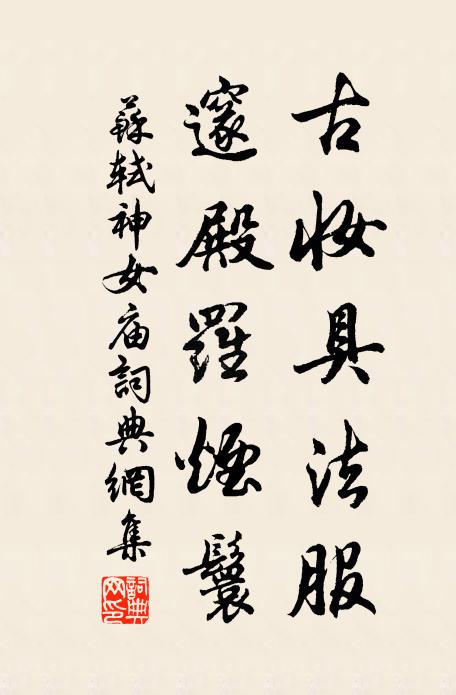 古妆具法服
邃殿羅煙鬟
蘇軾神女庙詞典網集
詞典网印